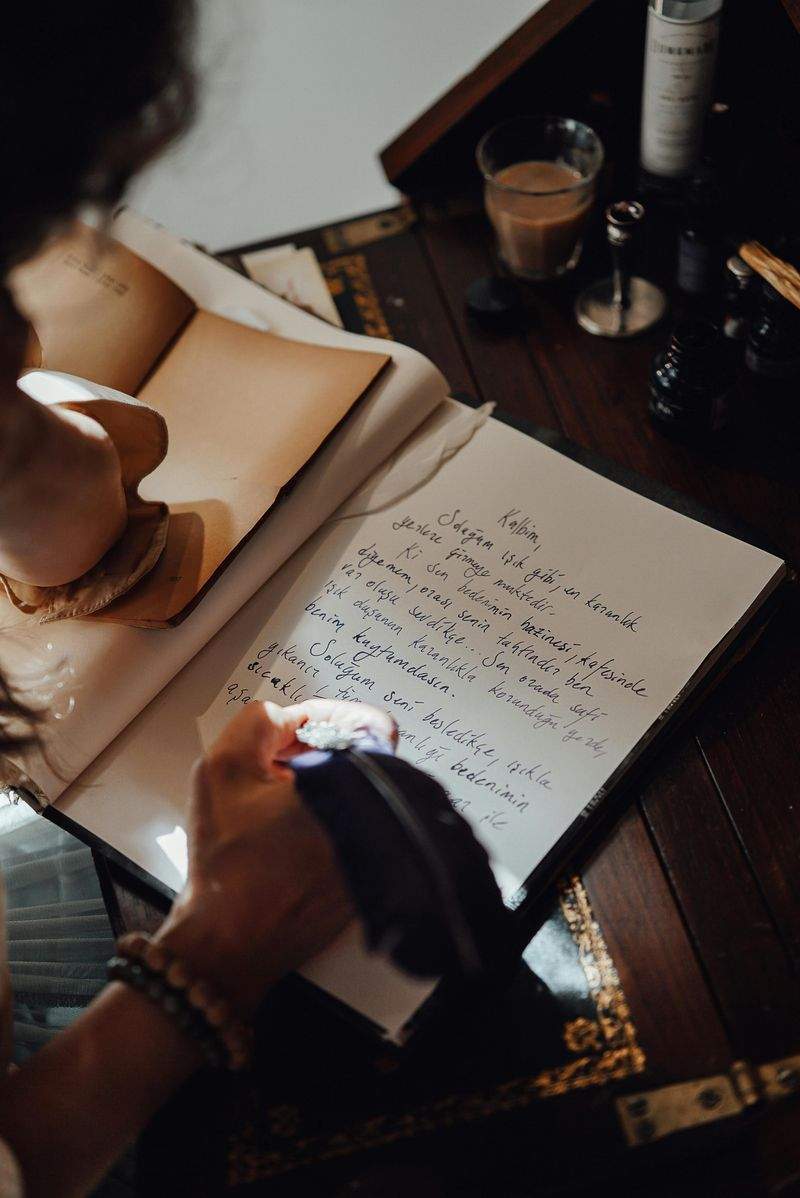 Kalbim,
Soluğum ışık gibi, en karanlık
yerlere girmeye muktedir.
Ki sen bedenimin hazinesi, kafesinde
diyemem, orası senin tahtındır ben
var oluşu sevdikçe... Sen orada safi
ışık duşunun karanlıkla korunduğu yerde,
benim kuytumdasın.
Soluğum seni besledikçe, ışıkla
yıkanır bedenimin
sıcaklı ile